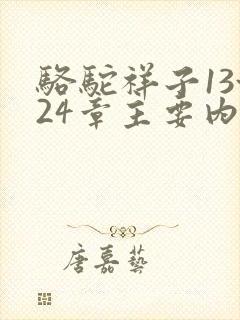 駱駝祥子13-
24章主要內
唐嘉藝